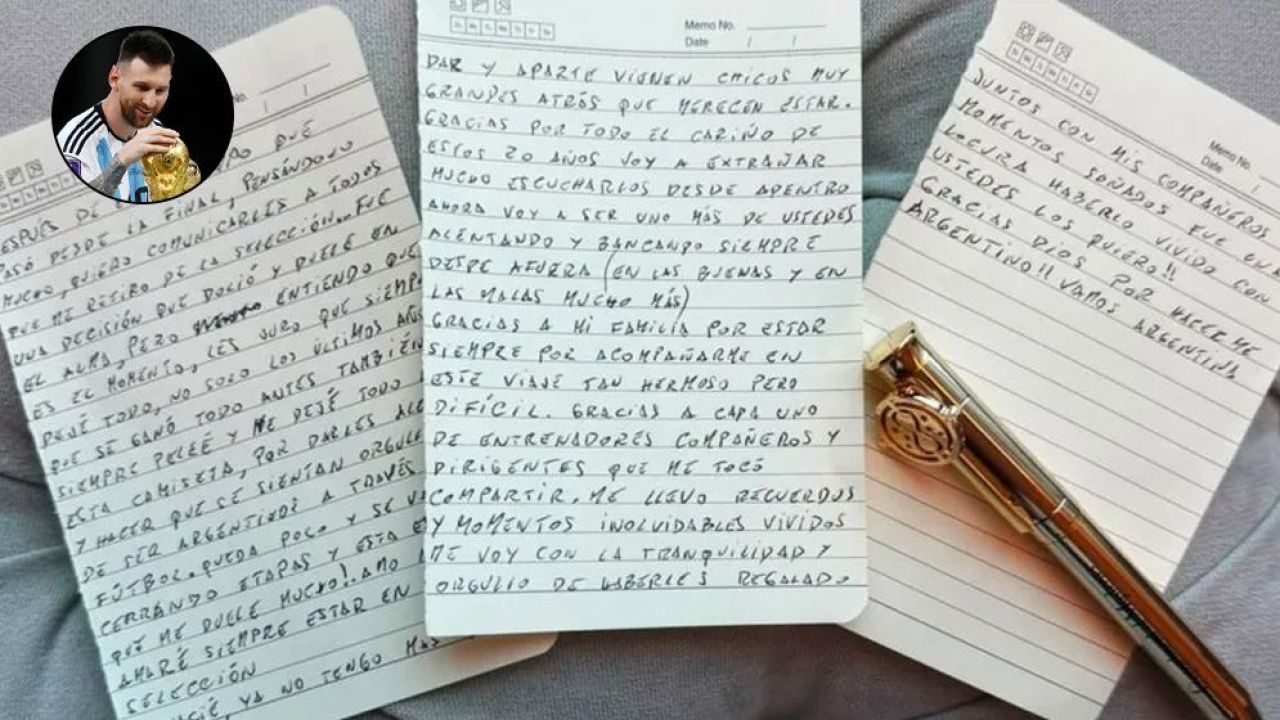 DESPUÉS DE QUE
PASÓ DESDE LA FINAL, PENSÁNDOLO
MUCHO, QUIERO COMUNICARLES A TODOS
QUE ME RETIRO DE LA SELECCIÓN.. FUE
UNA DECISIÓN QUE DOLIÓ Y DUELE EN
EL ALMA, PERO ENTIENDO QUE
ES EL MOMENTO, LES JURO QUE SIEMP
DEJÉ TODO, NO SOLO LOS ÚLTIMOS AÑOS
QUE SE GANÓ TODO ANTES TAMBIÉN
SIEMPRE PELEÉ Y ME DEJÉ TODO
ESTA CAMISETA, POR DARLES ALE
Y HACER QUE SE SIENTAN ORGULL
DE SER ARGENTINOS A TRAVÉS
FÚTBOL. QUEDA POCO Y SE V
CERRANDO ETAPAS Y ESTA E
QUE ME DUELE MUCHO!. AMO
AMARÉ SIEMPRE ESTAR EN
SELECCIÓN
YA NO TENGO MÁS
Memo No.
Date / /
DAR Y APARTE VIENEN CHICOS MUY
GRANDES ATRÁS QUE MERECEN ESTAR.
GRACIAS POR TODO EL CARIÑO DE
ESTOS 20 AÑOS VOY A EXTRAÑAR
MUCHO ESCUCHARLOS DESDE ADENTRO
AHORA VOY A SER UNO MÁS DE USTEDES
ALENTANDO Y BANCANDO SIEMPRE
DESDE AFUERA (EN LAS BUENAS Y EN
LAS MALAS MUCHO MÁS)
GRACIAS A MI FAMILIA POR ESTAR
SIEMPRE POR ACOMPAÑARME EN
ESTE VIAJE TAN HERMOSO PERO
DIFÍCIL. GRACIAS A CADA UNO
DE ENTRENADORES COMPAÑEROS Y
DIRIGENTES QUE ME TOCÓ
COMPARTIR. ME LLEVO RECUERDOS
Y MOMENTOS INOLVIDABLES VIVIDOS
ME VOY CON LA TRANQUILIDAD Y
ORGULLO DE HABERLES REGALADO
Memo No.
Date / /
JUNTOS CON MIS COMPAÑEROS
MOMENTOS SOÑADOS FUE UNA
LOCURA HABERLO VIVIDO CON
USTEDES LOS QUIERO!!
GRACIAS DIOS POR HACERME
ARGENTINO!! VAMOS ARGENTINA